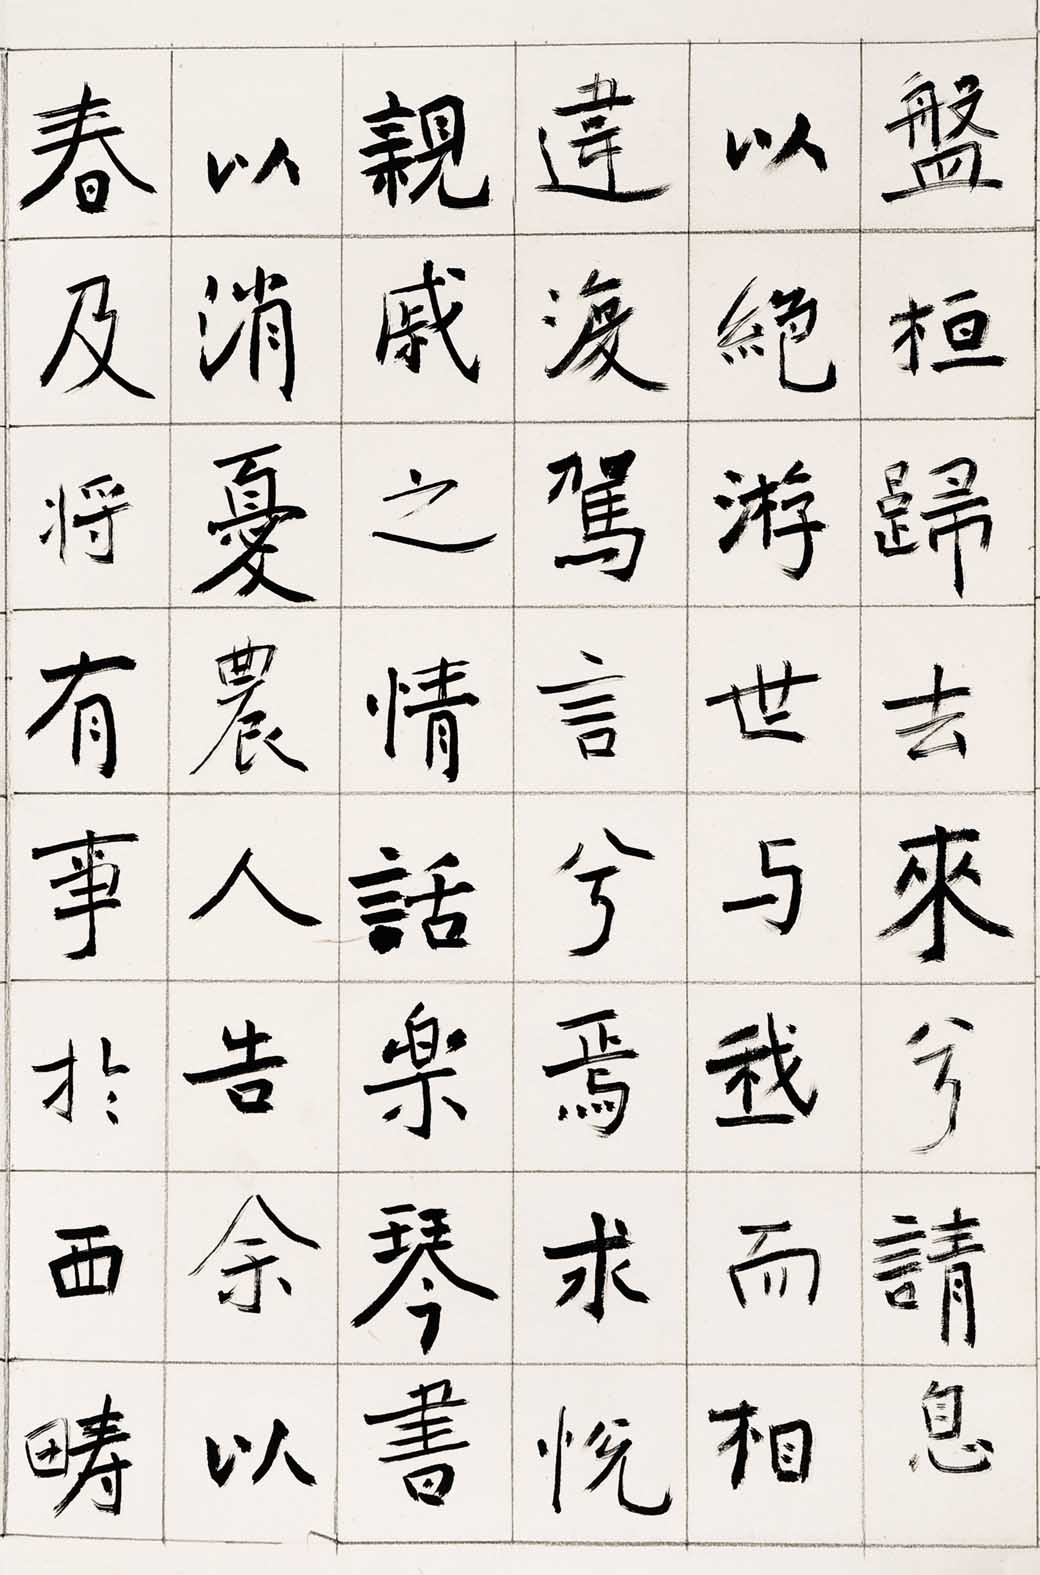 盤桓歸去來兮請息
以絕游世与我而相
違復駕言兮焉求悅
親戚之情話楽琴書
以消憂農人告余以
春及将有事於西畴